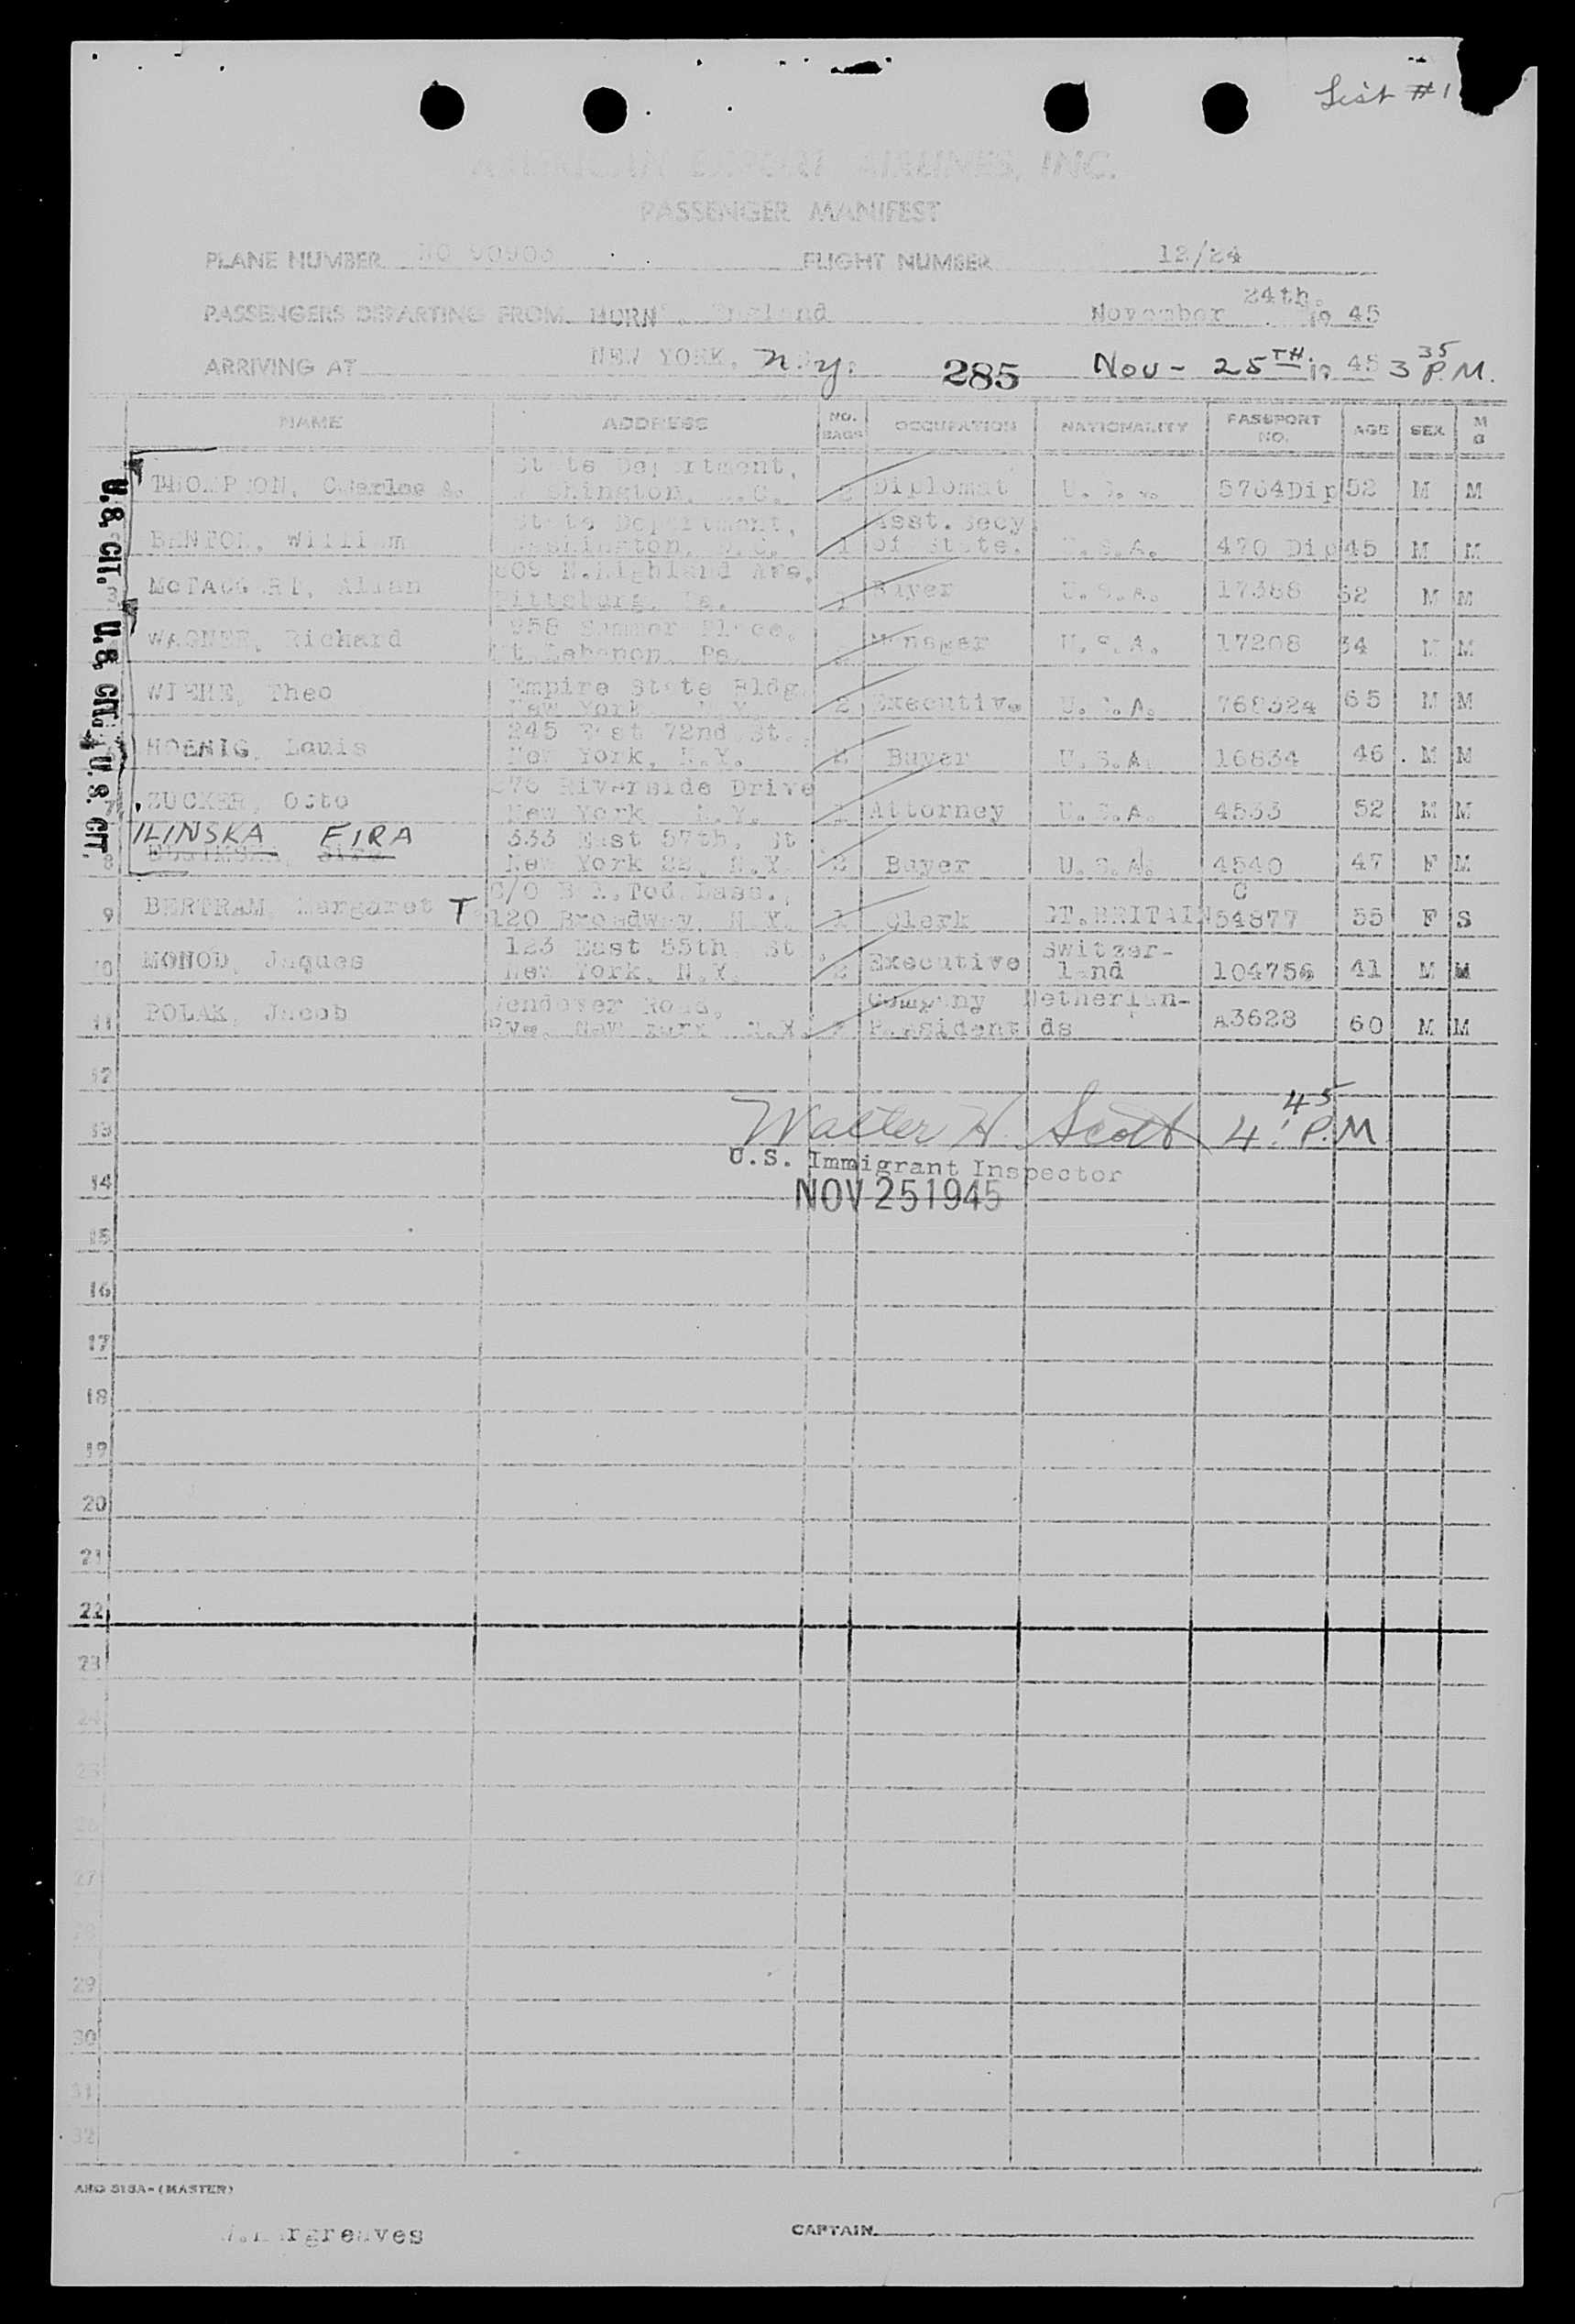 List #1
AMERICAN EXPORT AIRLINES, INC.
PASSENGER MANIFEST
PLANE NUMBER NC 90903 FLIGHT NUMBER 12/24
PASSENGERS DEPARTING FROM HURN, England November 24th. 19 45
ARRIVING AT NEW YORK, N.Y. 285 Nov - 25TH 19 45 3 35 P.M.
NAME ADDRESS NO. BAGS OCCUPATION NATIONALITY PASSPORT NO. AGE SEX M S
U.S. CIT. U.S. CIT. U.S. CIT.
State Department,
THOMPSON, Charles A. Washington, D.C. 2 Diplomat U.S.A. 5764Dip 52 M M
State Department, Asst. Secy
BENTON, William Washington, D.C. 1 of State. U.S.A. 470 Dip 45 M M
N.Highland Ave,
3 Allan Pittsburg, Pa. Buyer U.S.A. 17388 52 M M
958 Summer Place,
WAGNER, Richard Mt Lebanon, Pa. Manager U.S.A. 17208 34 M M
Empire State Bldg
Theo New York N.Y. 2 Executive U.S.A. 768324 65 M M
245 East 72nd St.,
HOENIG, Louis New York, N.Y. 2 Buyer U.S.A. 16834 46 M M
Riverside Drive
7 ZUCKER, Otto New York N.Y. 1 Attorney U.S.A. 4533 52 M M
ILINSKA EIRA 333 East 57th, St
8 New York 22, N.Y. 2 Buyer U.S.A. 4540 47 F M
C/O C
9 BERTRAM, Margaret T 120 Broadway, N.Y. 1 Clerk GT.BRITAIN 54877 55 F S
123 East 55th St. Switzer-
10 MONOD, Jaques New York, N.Y. 2 Executive land 104754 41 M M
Wendover Road, Company Netherlan-
11 POLAK, Jacob Rye, New York N.Y. President ds A3628 60 M M
12
13 Walter H. Scott 4:45 P.M
U.S. Immigrant Inspector
14 NOV 25 1945
15
16
17
18
19
20
21
22
23
24
25
26
27
28
29
30
31
32
(MASTER)
W.Hargreaves CAPTAIN